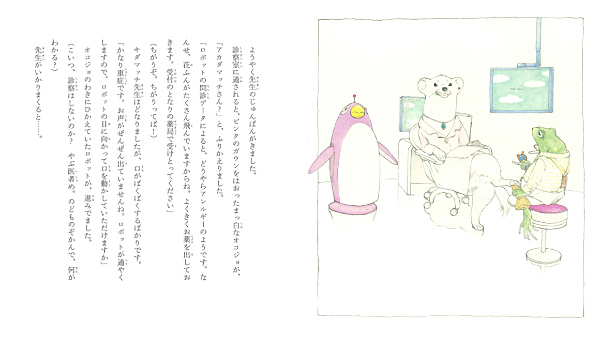 ようやく先生のじゅんばんがきました。
診察室に通されると、ピンクのガウンをはおったまっ白なオコジョが、
「アカダマッチさん？」と、ふりかえりました。
「ロボットの問診データによると、どうやらアレルギーのようです。な
んせ、花ふんがたくさん飛んでいますからね。よくきくお薬を出してお
きます。受付のとなりの薬局で受けとってください」
（ちがうぞ、ちがうってば！）
キダマッチ先生はどなりましたが、口がぱくぱくするばかりです。
「かなり重症です。お声がぜんぜん出ていませんね。ロボットが通やく
しますので、ロボットの目に向かって口を動かしていただけますか」
オコジョのわきにひかえていたロボットが、進みでました。
（こいつ、診察はしないのか？　やぶ医者め。のどものぞかんで、何が
わかる？）
先生がいかりまくると……。